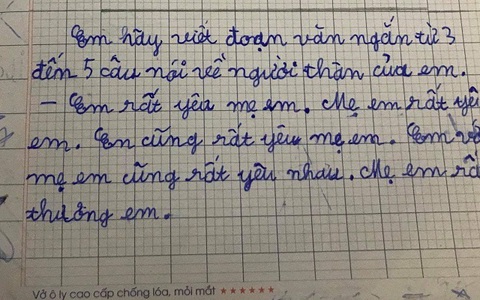 Em hãy viết đoạn văn ngắn từ 3
đến 5 câu nói về người thân của em.
– Em rất yêu mẹ em. Mẹ em rất yê
em. Em cũng rất yêu mẹ em. Em và
mẹ em cũng rất yêu nhau. Mẹ em rấ
thương em.
Vở ô ly cao cấp chống lóa, mỏi mắt ★★★★★★